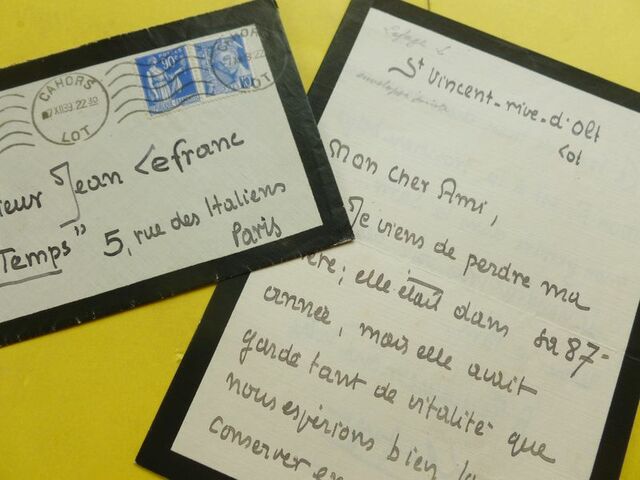 CAHORS
7 XII 39 22 30
LOT
90c
CAHORS
LOT
ieur Jean Lefranc
Temps"
5, rue des Italiens
Paris
St Vincent-rive-d'Olt
Lot
Mon cher Ami,
Je viens de perdre ma
ère; elle était dans sa 87-
année, mais elle avait
gardé tant de vitalité que
nous espérions bien la
conserver en